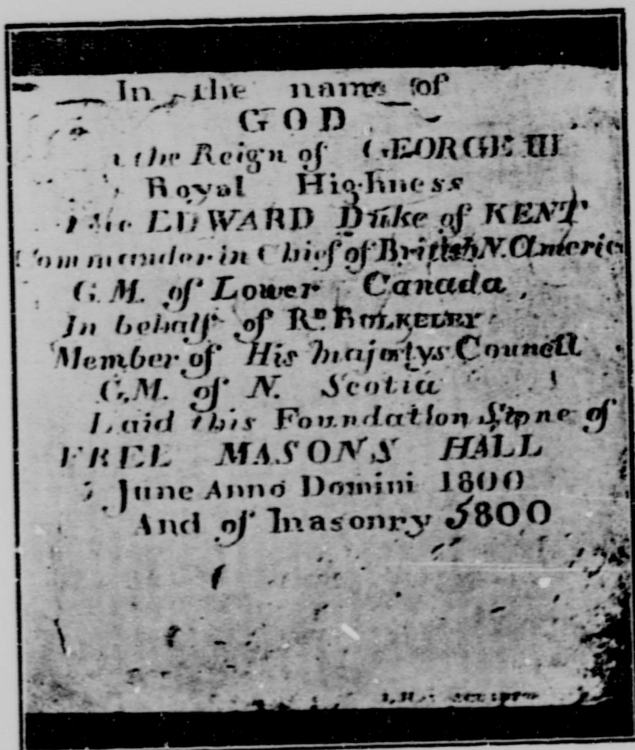 In the name of
GOD
the Reign of GEORGE III
Royal Highness
EDWARD Duke of KENT
Commander in Chief of British N. America
G.M. of Lower Canada,
In behalf of Rd. BULKELEY
Member of His Majestys Councell
G.M. of N. Scotia
Laid this Foundation Stone of
FREE MASONS HALL
June Anno Domini 1800
And of Masonry 5800